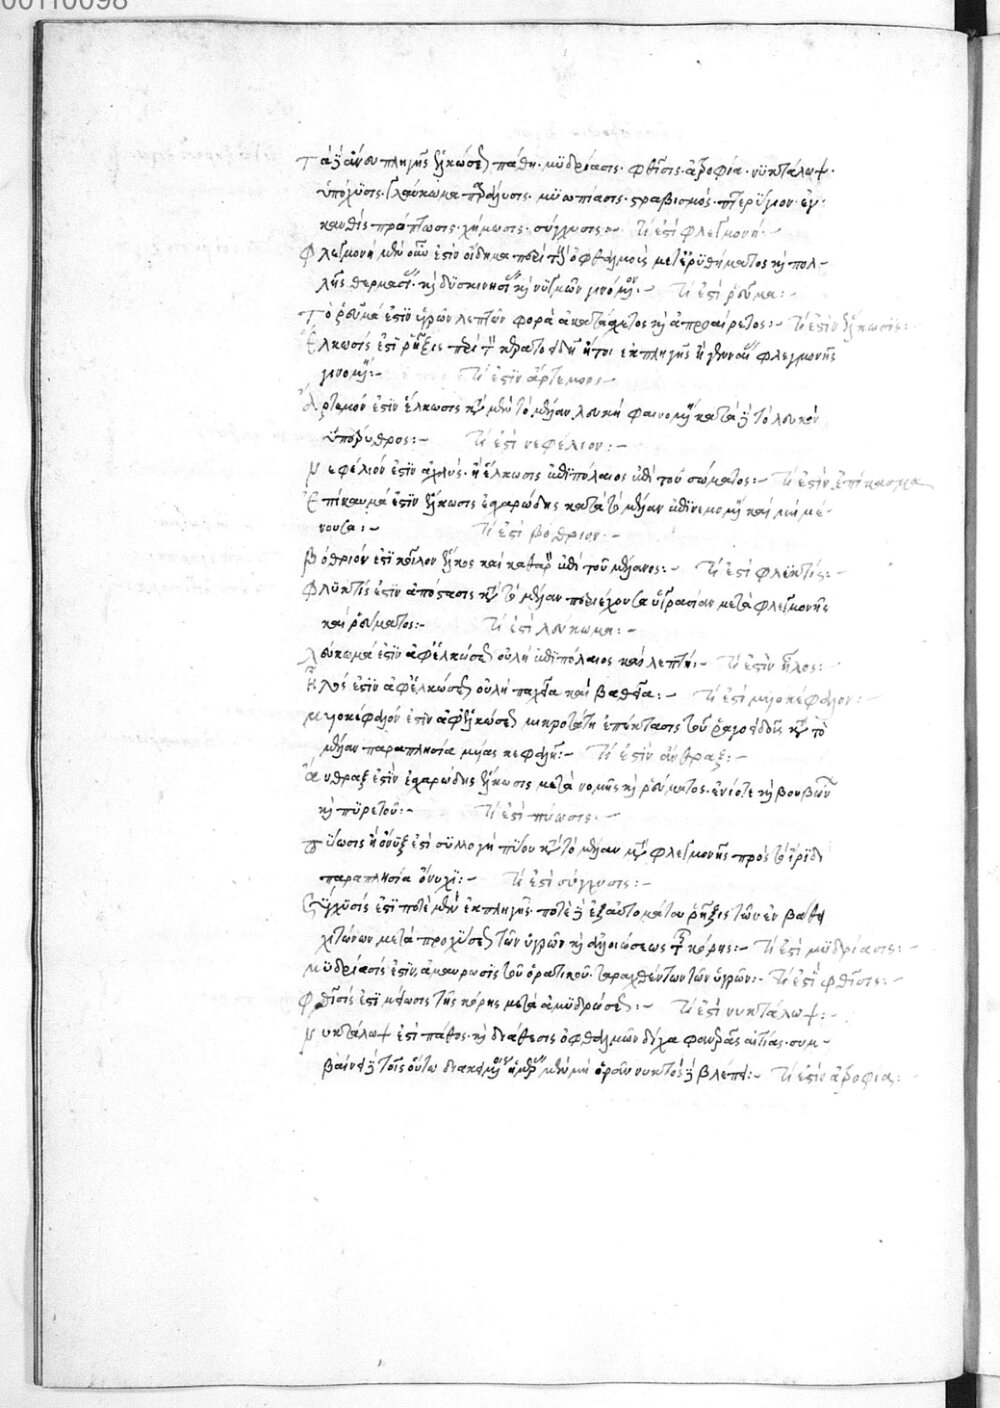 00110098
Τὰ δ' ἄνευ πληγῆς ἑλκώσεως πάθη· μυδρίασις· φθίσις· ἀτροφία· νυκτάλωψ·
ὑπόχυσις· γλαύκωμα παράλυσις· μυωπίασις· στραβισμός· πτερύγιον· ἐγ-
κανθὶς πρόπτωσις· χήμωσις· σύγχυσις:~ Τί ἐστι φλεγμονή·~
Φλεγμονὴ μὲν οὖν ἐστὶν οἴδημα περὶ τοὺς ὀφθαλμοὺς μετ' ἐρυθήματος καὶ πολ-
λῆς θερμασίας· καὶ δυσκινησίας καὶ νυγμῶν γινομένων:~ Τί ἐστι ῥεῦμα:~
Τὸ ῥεῦμά ἐστιν ὑγρῶν λεπτῶν φορὰ ἀκατάσχετος καὶ ἀπροαίρετος:~ Τί ἐστὶν ἕλκωσις:
Ἕλκωσίς ἐστι ῥῆξις περὶ τὸν κερατοειδῆ ἤτοι ἐκ πληγῆς ἢ γενναίας φλεγμονῆς
γινομένη:~ Τί ἐστὶν ἄρτεμον:~
Ἄρτεμόν ἐστὶν ἕλκωσις κατὰ μὲν τὸ μέλαν λευκὴ φαινομένη κατὰ δὲ τὸ λευκὸν
ὑπόρυθρος:~ Τί ἐστι νεφέλιον:~
Νεφέλιόν ἐστὶν ἀχλὺς· ἢ ἕλκωσις ἐπιπόλαιος ἐπὶ τοῦ σώματος:~ Τί ἐστὶν ἐπίκαυμα
Ἐπίκαυμά ἐστὶν ἕλκωσις ἐσχαρώδης κατὰ τὸ μέλαν ἐπινεμομένη καὶ μὴ μέ-
νουσα:~ Τί ἐστι βόθριον·~
Βόθριόν ἐστι κοῖλον ἕλκος καὶ καθαρὸν ἐπὶ τοῦ μέλανος:~ Τί ἐστι φλυκτίς:~
Φλυκτίς ἐστὶν ἀπόστασις κατὰ τὸ μέλαν περιέχουσα ὑγρασίαν μετὰ φλεγμονῆς
καὶ ῥεύματος:~ Τί ἐστι λεύκωμα:~
Λεύκωμά ἐστὶν ἀφ' ἑλκώσεως οὐλὴ ἐπιπόλαιος καὶ λεπτή:~ Τί ἐστὶν ἧλος:~
Ἧλός ἐστὶν ἀφ' ἑλκώσεως οὐλὴ παχεῖα καὶ βαθεῖα:~ Τί ἐστι μυιοκέφαλον:~
Μυιοκέφαλόν ἐστὶν ἀφ' ἑλκώσεως μικροτάτη ἐπέκτασις τοῦ ῥαγοειδοῦς κατὰ τὸ
μέλαν παραπλησία μυίας κεφαλῇ:~ Τί ἐστὶν ἄνθραξ:~
Ἄνθραξ ἐστὶν ἐσχαρώδης ἕλκωσις μετὰ νομῆς καὶ ῥεύματος· ἐνίοτε καὶ βουβῶνος
καὶ πυρετοῦ:~ Τί ἐστι πύωσις·~
Πύωσις ἢ ὄνυξ ἐστι συλλογὴ πύου κατὰ τὸ μέλαν μετὰ φλεγμονῆς πρὸς τῇ ἴριδι
παραπλησία ὄνυχι:~ Τί ἐστι σύγχυσις:~
Σύγχυσίς ἐστι ποτὲ μὲν ἐκ πληγῆς· ποτὲ δ' ἐξ αὐτομάτου ῥῆξις τῶν ἐν βάθει
χιτώνων μετὰ προχύσεως τῶν ὑγρῶν καὶ ἀλλοιώσεως τῆς κόρης:~ Τί ἐστι μυδρίασις:~
Μυδρίασίς ἐστὶν ἀμαύρωσις τοῦ ὁρατικοῦ· ταραχθέντων τῶν ὑγρῶν:~ Τί ἐστι φθίσις:~
Φθίσίς ἐστι μείωσις τῆς κόρης μετὰ ἀμυδρώσεως:~ Τί ἐστι νυκτάλωψ:~
Νυκτάλωψ ἐστι πάθος· καὶ διάθεσις ὀφθαλμῶν δίχα φανερᾶς αἰτίας· συμ-
βαίνει δὲ τοῖς οὕτω διακειμένοις ἡμέρας μὲν μὴ ὁρᾶν νυκτὸς δὲ βλέπειν:~ Τί ἐστὶν ἀτροφία: